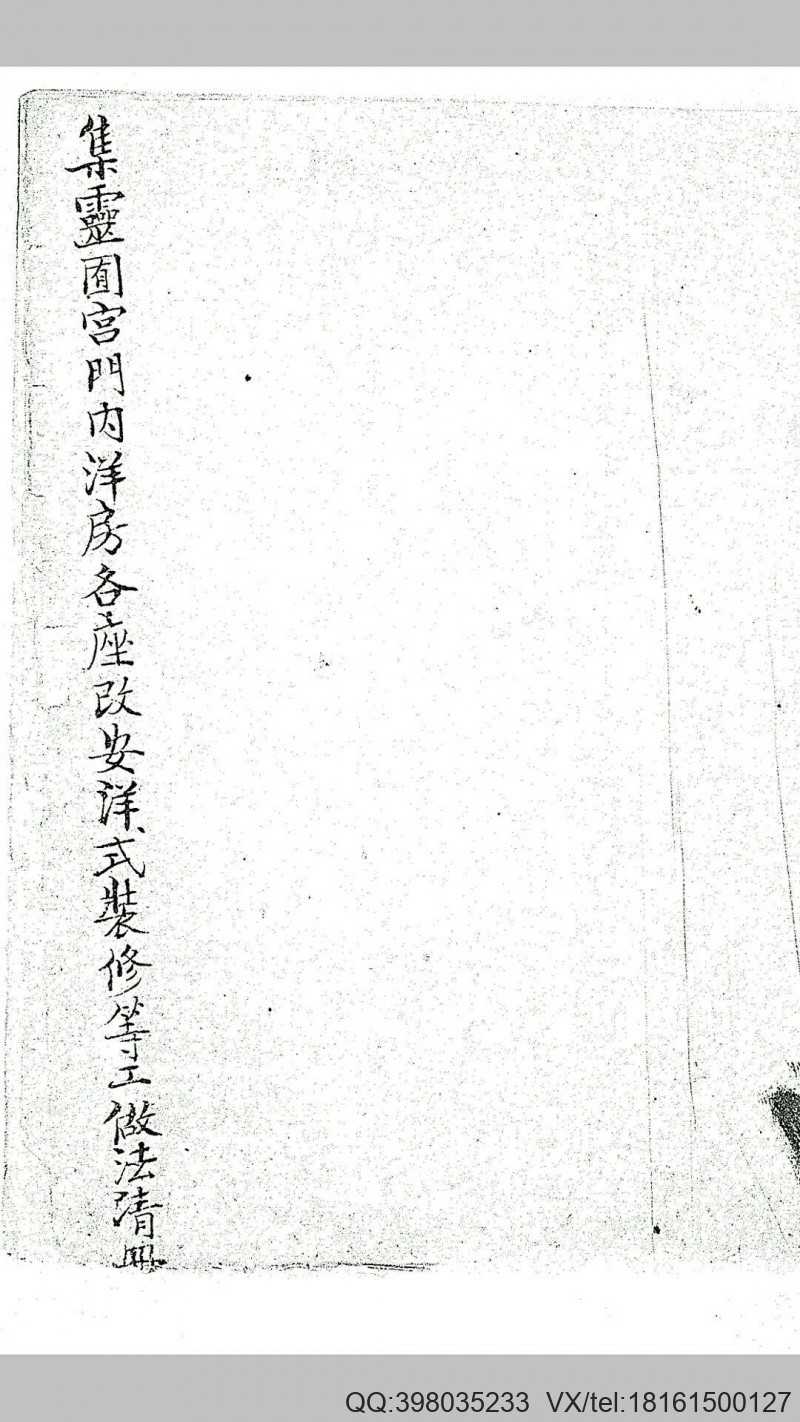 集靈囿宮門内洋房各座改安洋式裝修等工做法清冊
QQ:398035233 VX/tel:18161500127